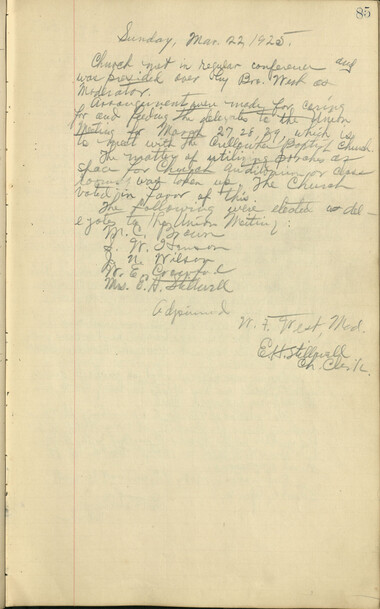 85
Sunday, Mar. 22, 1925.
Church met in regular conference and
was presided over by Bro. West as
Moderator.
Arrangements were made for caring
for and feeding the delegates to the Union
Meeting for March 27-28-29, which is
to meet with the Cullowhee Baptist Church.
The matter of utilizing porches as
space for Church Auditorium or class
rooms was taken up. The Church
voted in favor of this.
The following were elected as del-
egates to the Union Meeting:
M. C. Brown
J. W. Henson
J. N. Wilson
W. E. Crawford
Mrs. E. H. Stillwell
Adjourned
W. F. West, Mod.
E. H. Stillwell
Ch. Clerk.